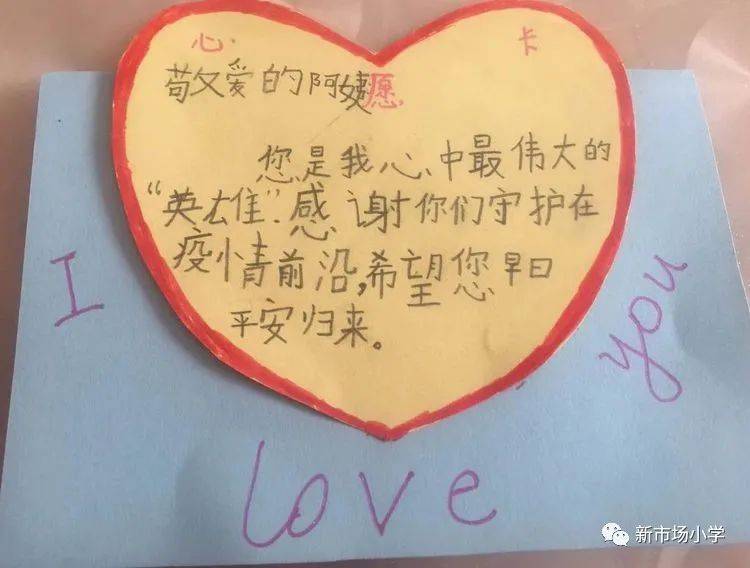 心 愿 卡
敬爱的阿姨
您是我心中最伟大的
“英雄”.感谢你们守护在
疫情前沿,希望您早日
平安归来。
I love you
新市场小学